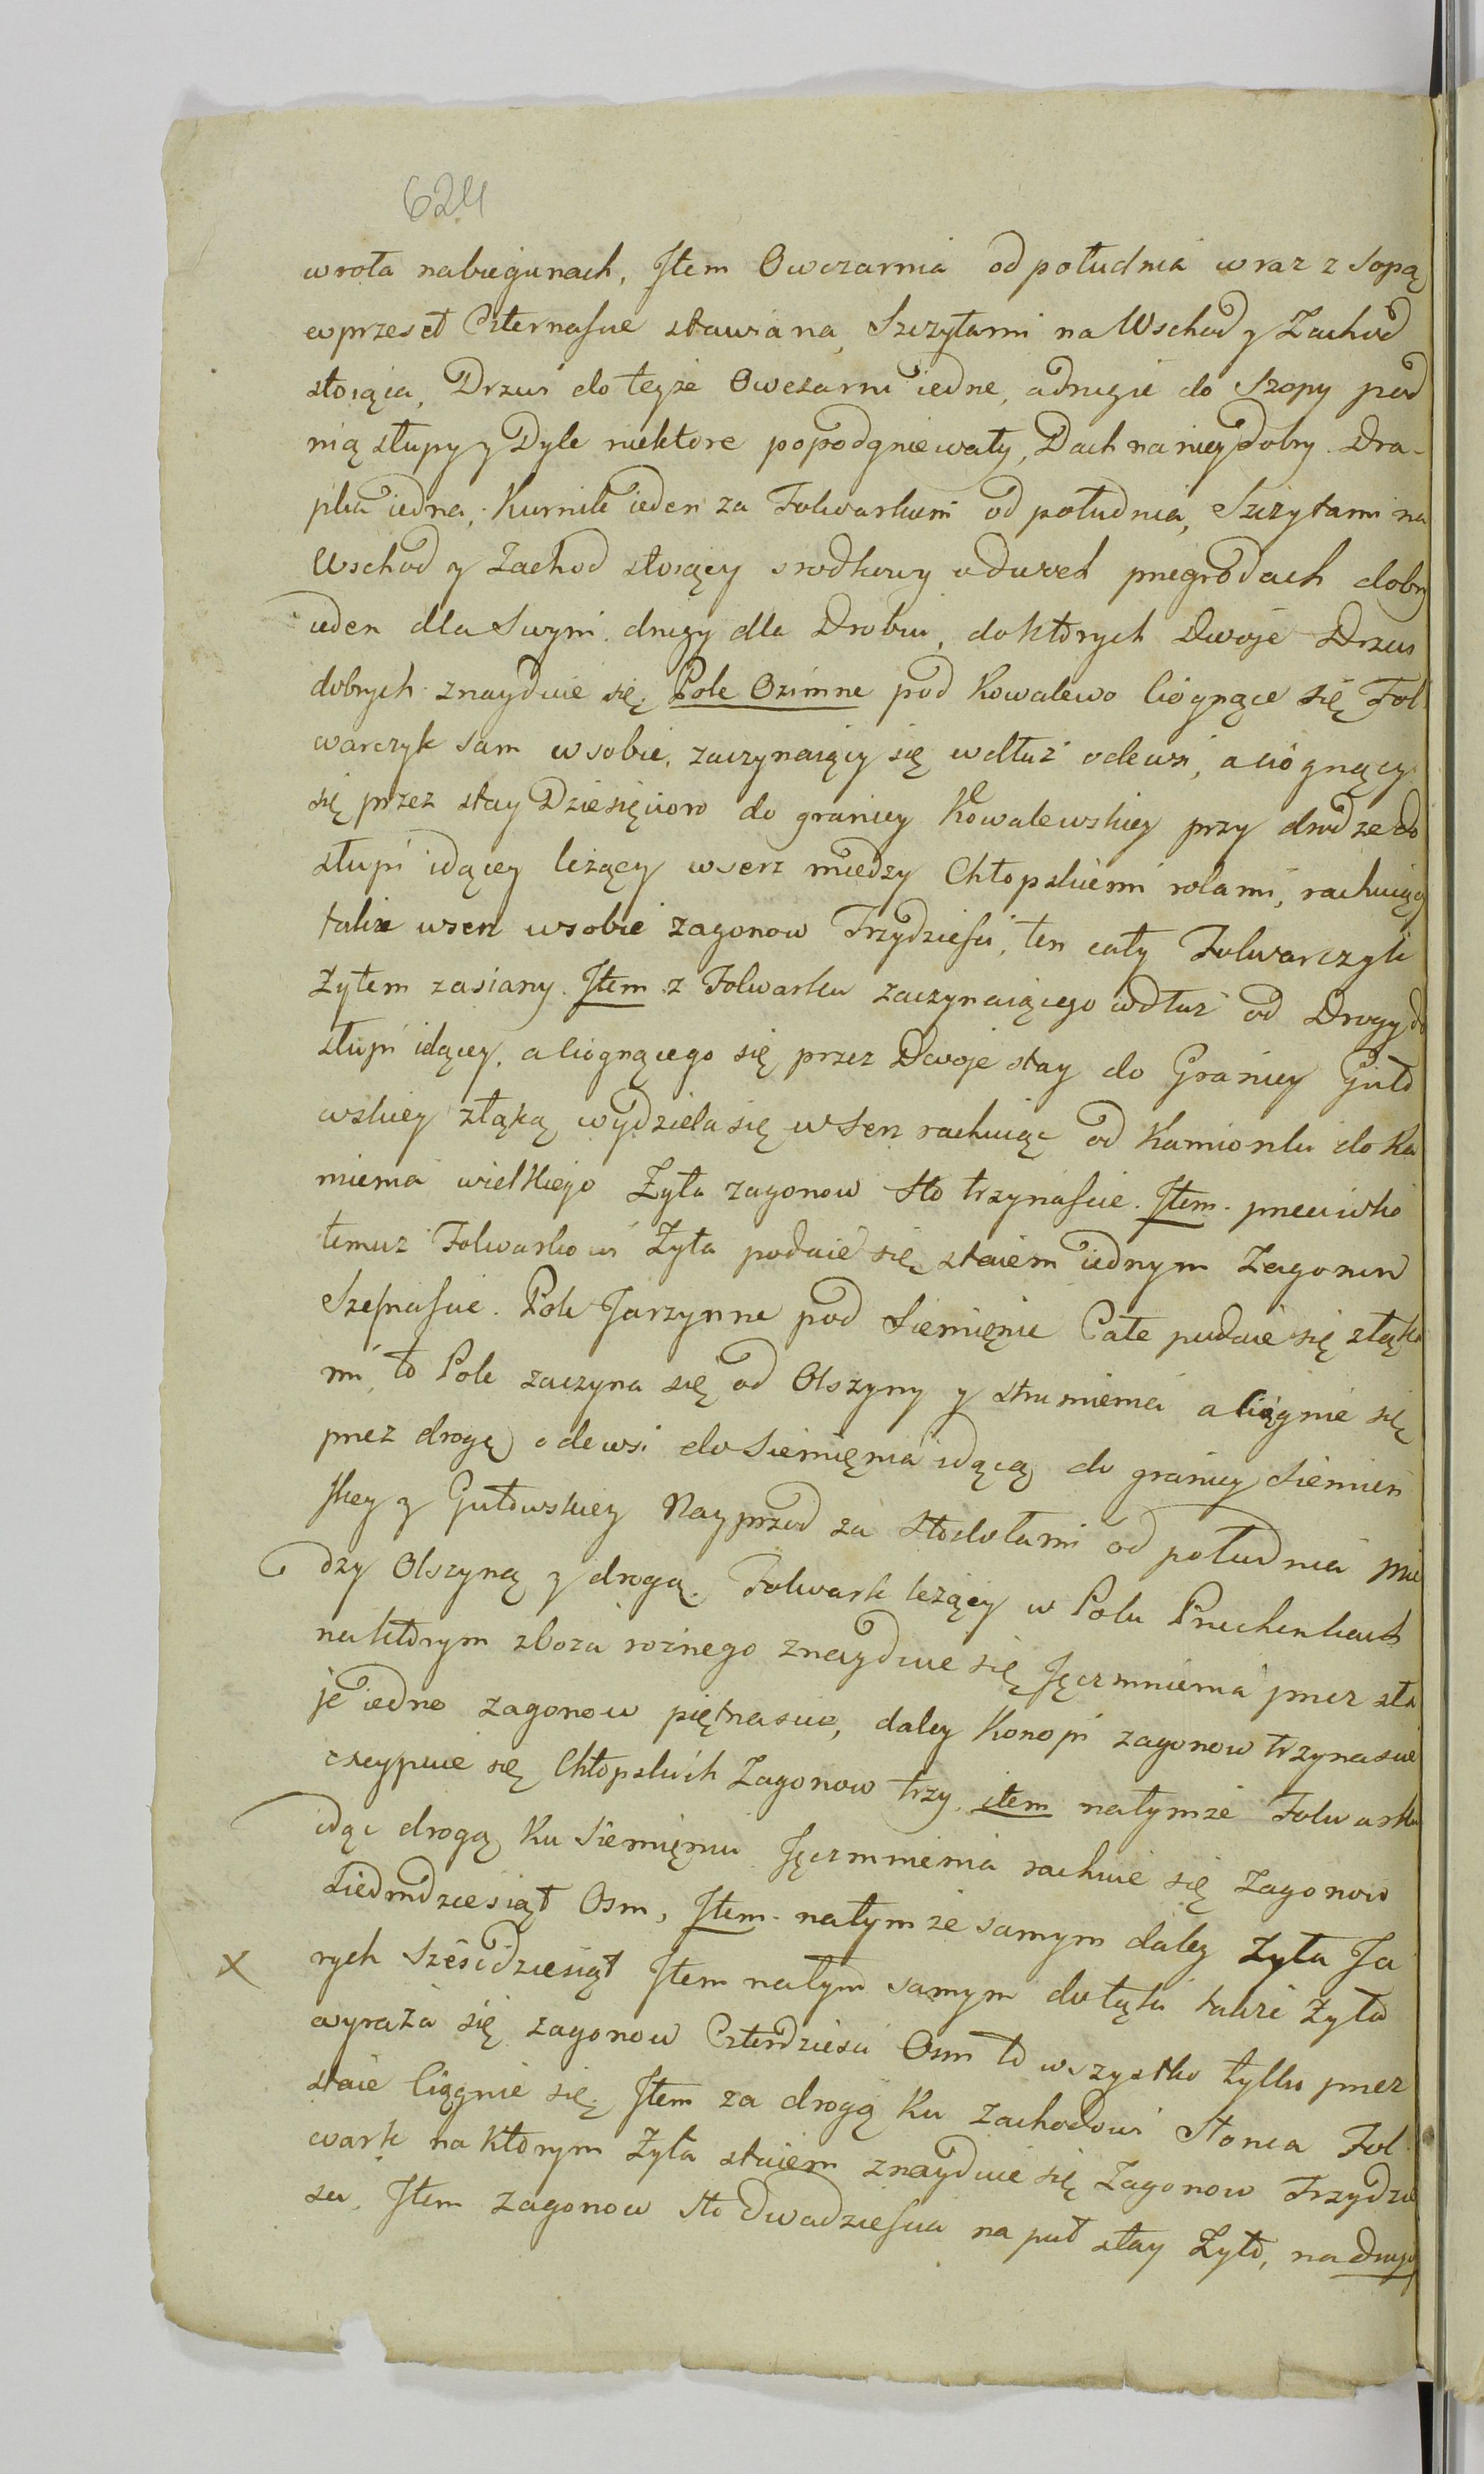 624
wrota nabiegunach, Jtem Owczarnia od południa wraz z sopą
wprzeseł Czternaście stawiana, Szczytami na Wschod y Zachod
stoiąca, Drzwi do teyże Owczarni iedne, adrugie do Szopy pod
nią słupy y Dyle niektore popodgniewały, Dach na niey dobry. Dra-
pka iedna, Kurnik ieden za Folwarkiem od południa, Szczytami na
Wschod y Zachod stoiący srodkowy odwoch przegrodach dobry
ieden dla Swyni, drugy dla Drobiu, doktorych Dwoje Drzwi
dobrych znayduie się, Pole Ozimne pod Kowalewo Ciognące się Fol
warczyk sam wsobie, zaczynaiący się wdłuż odewsi, aciognący
się przez stay Dziesięcioro do granicy Kowalewskiey przy drodze do
słupi idącey leżący wserz między Chłopskiemi rolami, rachuiąc
także wserz wsobie zagonow Trzydzieści, ten cały Folwarczyk
Żytem zasiany. Jtem z Folwarku zaczynaiącego wdłuż od Drogy do
słupi idącey, aciognącego się przez Dwoje stay do Granicy Guto
wskiey złąką wydziela się wserz rachuiąc od Kamionki do Ka
mienia wielkiego Żyta zagonow sto trzynaście. Jtem przeciwko
temuż Folwarkowi Żyta podaie się staiem iednym Zagonow
Szesnaście. Pole Jarzynne pod Siemięnie Całe podaie się złąka
mi, to Pole zaczyna się od Olszyny y strumienia a Ciągnie się
przez drogę odewsi do Siemięnia idącą do granicy Siemień
skey y Gutowskiey Nayprzod za stodołami od południa mię
dzy Olszyną y drogą. Folwark leżący w Polu
naktorym zboża rożnego znayduie się Jęczmnienia przez sta
je iedno zagonow piętnascie, daley Konopi zagonow trzynascie
excypuie się Chłopskich Zagonow trzy, item natymże Folwarku
idąc drogą Ku Siemięniu Jęczmnienia rachuie się Zagonow
Siedmdziesiąt Osm, Jtem natymże samym daley Żyta Ja
rych Sześcdziesiąt Jtem natym samym dołąki także Żyto
wyraża się zagonow Czterdzieści Osm to wszystko tylko przez
staie Ciągnie się, Jtem za drogą Ku Zachodowi Słonca Fol
wark na Ktorym Żyta staiem znayduie się Zagonow Trzydzie
sci, Jtem zagonow sto dwadziescia na puł stay Żyto, na drugi
x